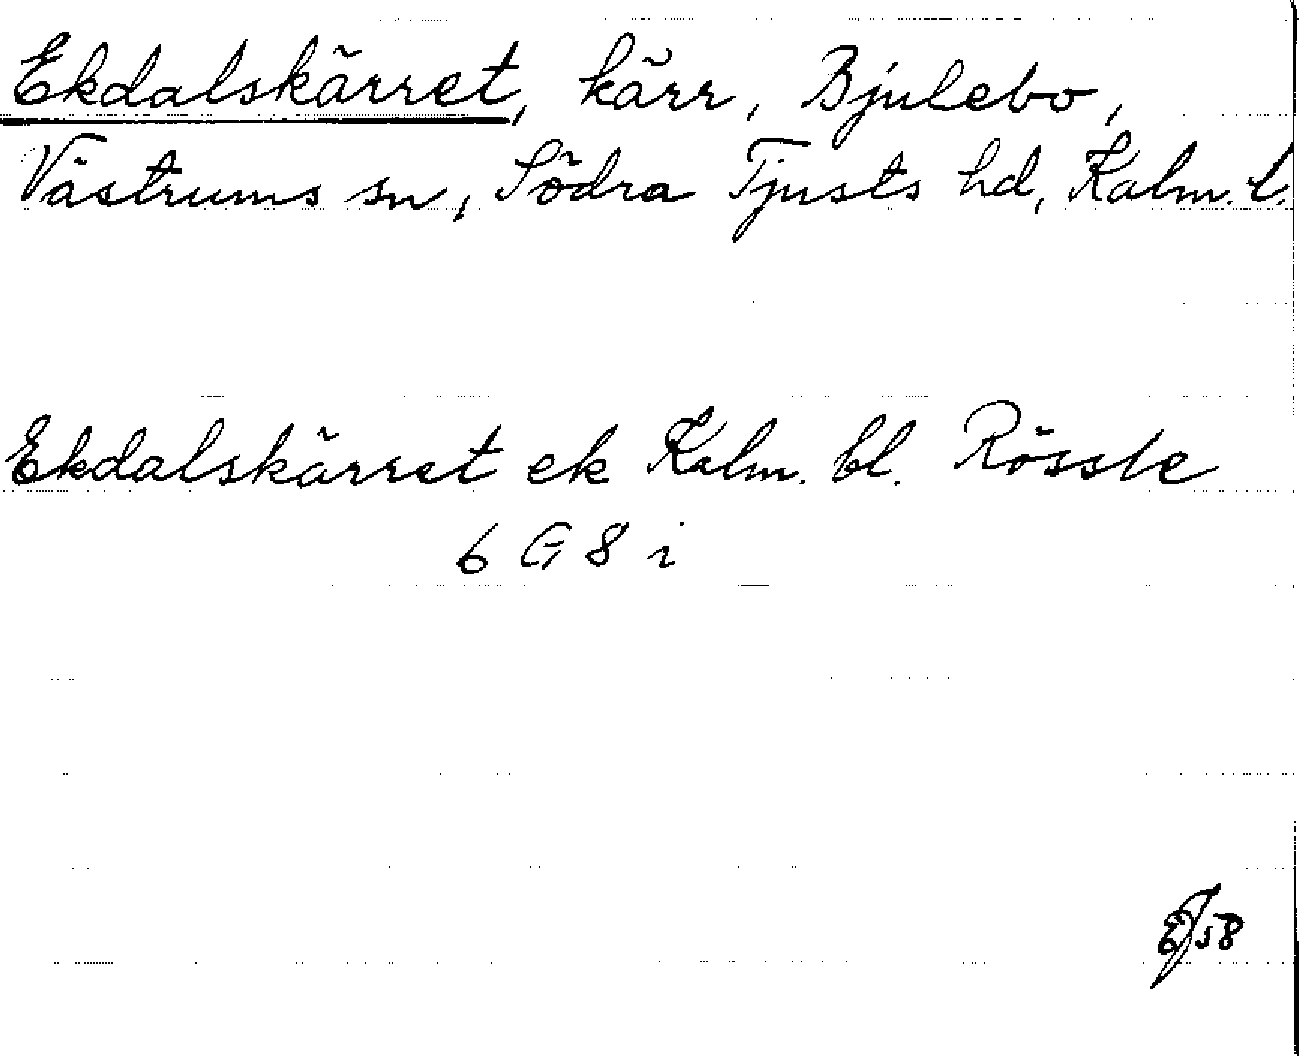 Ekdalskärret, kärr, Bjulebo,
Västrums sn, Södra Tjusts hd, Kalm. l.
Ekdalskärret ek Kalm. bl. Rössle
6 G 8 i
58